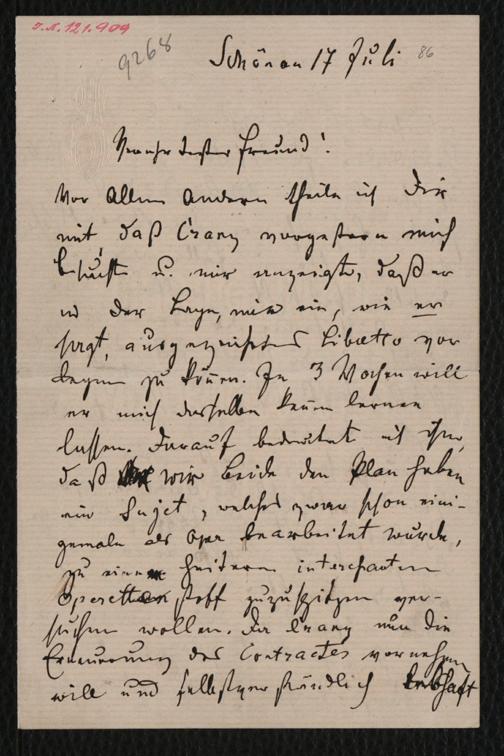 I.N. 121.909
9268
Schönau 17 Juli 86
Verehrtester Freund!
Vor allem andern theile ich Dir
mit daß Crany vorgestern mich
besuchte u. mir anzeigte, daß er
in der Lage, mir ein, wie er
sagt, ausgezeichnetes Libretto vor
legen zu können. In 3 Wochen will
er mich dasselbe kennen lernen
lassen. Darauf bedeutet ich ihm,
daß wir beide den Plan haben
ein Sujet, welches zwar schon eini-
gemale als Oper bearbeitet wurde,
zu einem heitern interessanten
Operettenstoff zuzuspitzen ver-
suchen wollen. Da Crany nun die
Erneuerung des Contractes vornehmen
will und selbstverständlich lebhaft